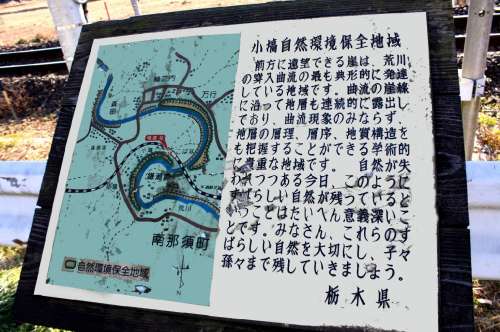 小塙自然環境保全地域
前方に遠望できる崖は、荒川
の穿入曲流の最も典形的に発達
している地域です。曲流の崖線
に沿って地層も連続的に露出し
ており、曲流現象のみならず、
地層の層理、層序、地質構造を
も把握することができる学術的
に貴重な地域です。 自然が失
われつつある今日、このように
すばらしい自然が残っていると
いうことはたいへん意義深いこ
とです。みなさん、これらのす
ばらしい自然を大切にし、子々
孫々まで残していきましょう。
栃木県
万行
荒川
南那須町
自然環境保全地域